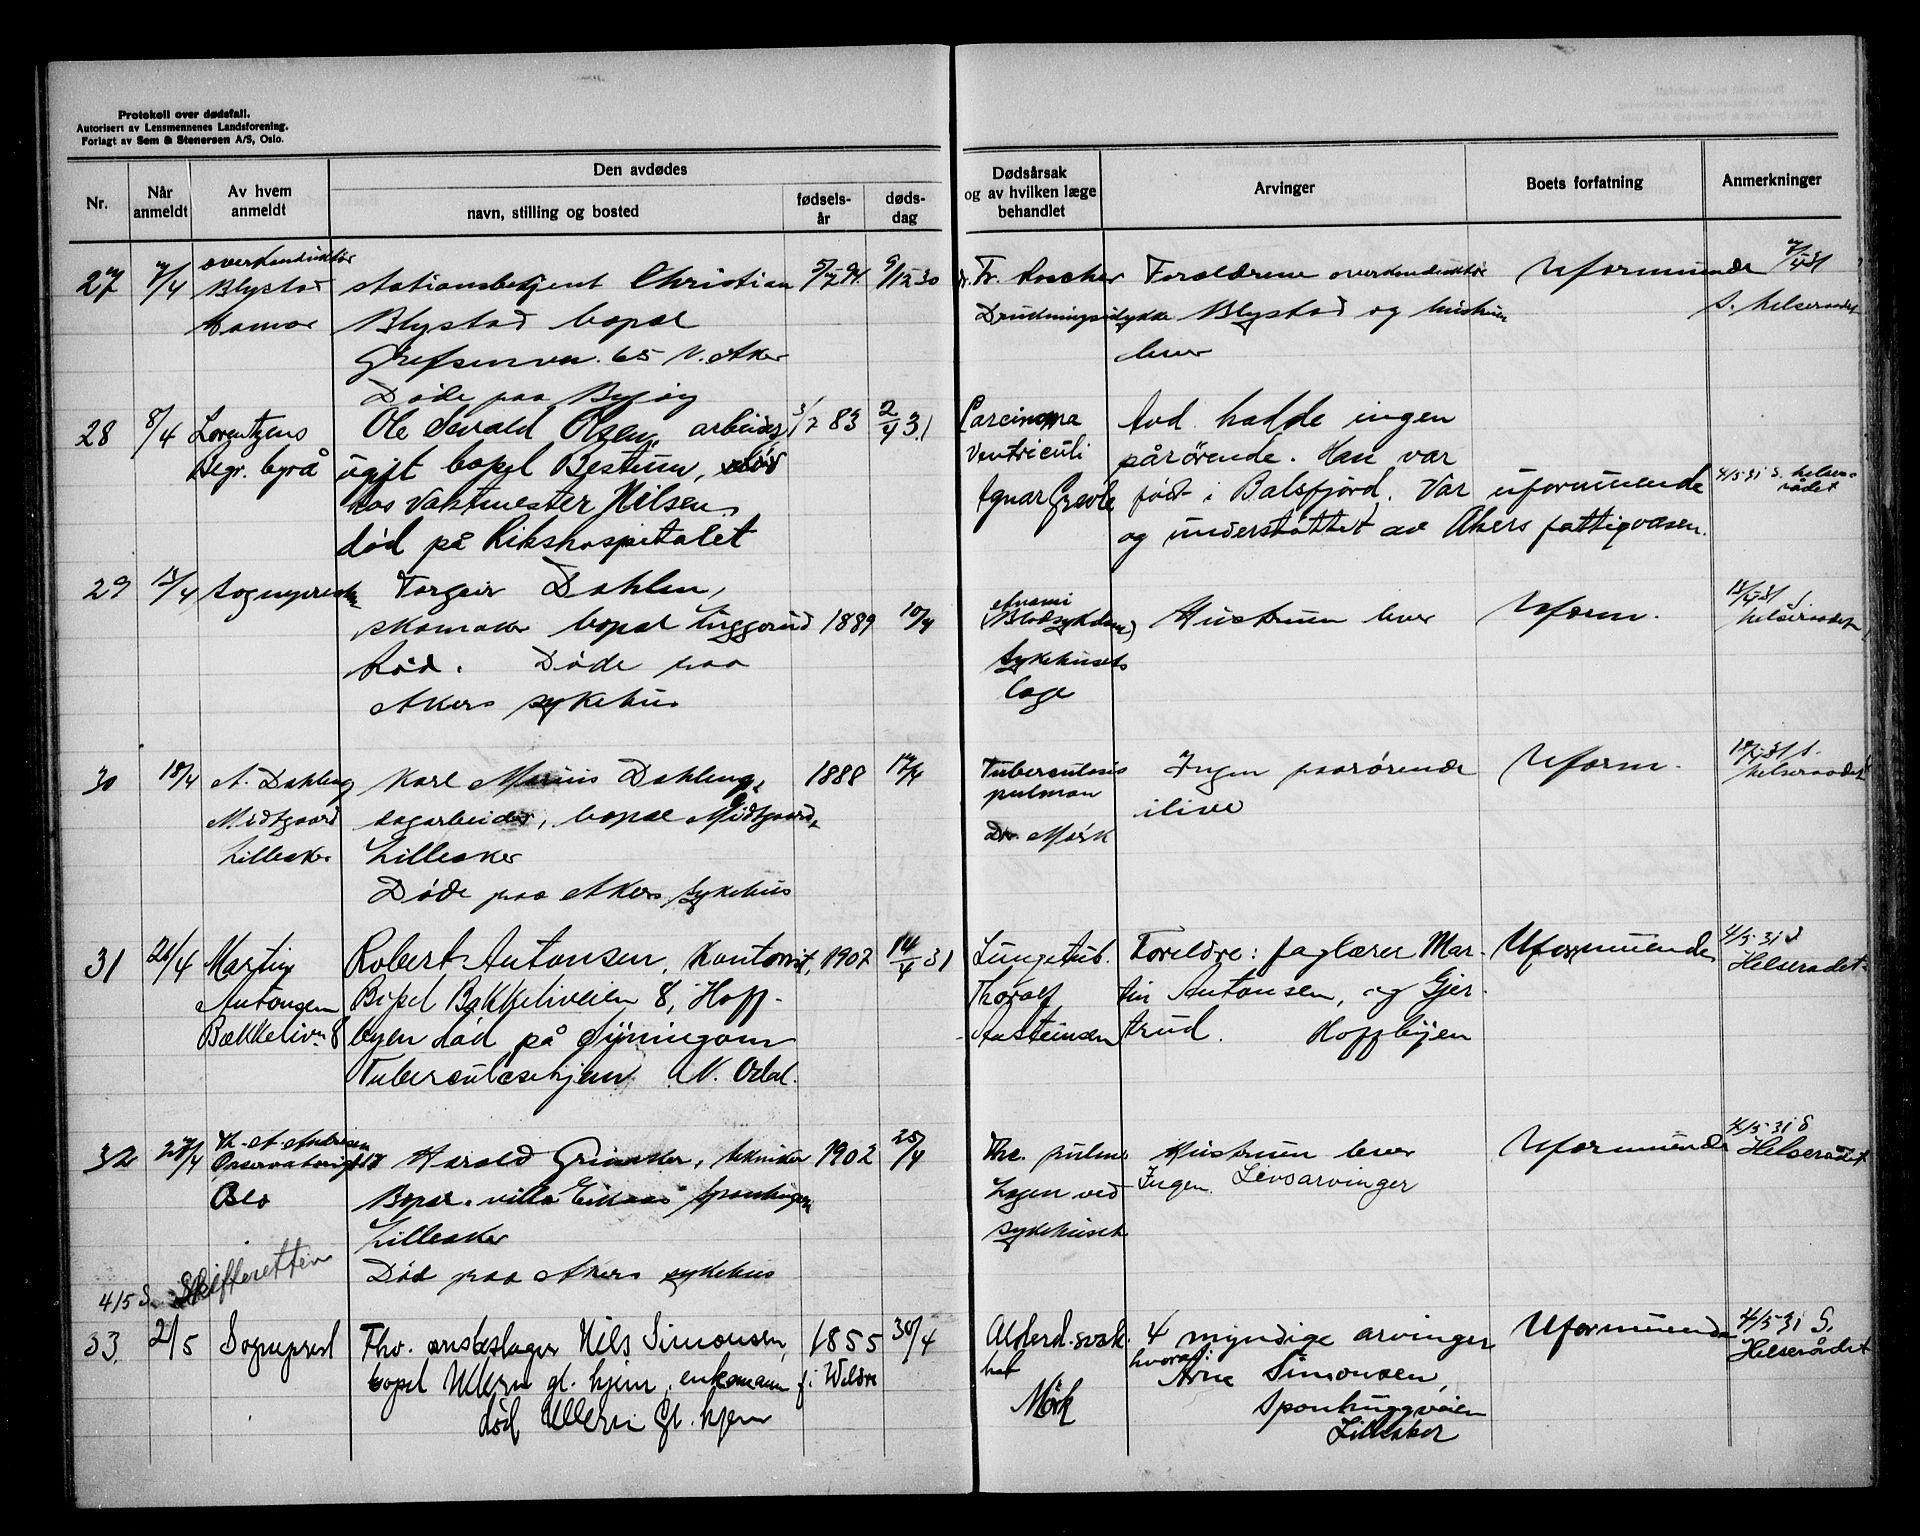 Protokoll over dødsfall.
Autorisert av Lensmennenes Landsforening.
Forlagt av Sem & Stenersen A/S, Oslo.
Nr.
Når anmeldt
Av hvem anmeldt
Den avdødes
navn, stilling og bosted
fødsels-år
døds-dag
Dødsårsak og av hvilken læge behandlet
Arvinger
Boets forfatning
Anmerkninger
27
overkonduktør
Blystad
Hamar
stationsbetjent Christian
Blystad bopæl
Grefsenvn. 65 V. Aker
Døde paa Bygøy
Drukningsulykke
Forældrene overkonduktør
Blystad og hustru
lever
Uformuende
S. helseraadet
28
8/4
Lorentzens
Begr. byrå
Ole Sevald Olsen, arbeider,
ugift bopel Bestum,
hos Vaktmester Nilsen,
død på Rikshospitalet
83
2/4 31
Carcinoma
Ventriculi
Avd. hadde ingen
pårørende. Han var
født i Balsfjord. Var uformuende
og understøttet av Akers fattigvæsen.
4/5 31 S. helse-
rådet
29
13/4
Sogneprest
Torgeir Dahlen,
skomaker bopæl
Død. Døde paa
Akers sykehus
1889
10/4
Anæmi
(Blodsykdom)
Sykehusets
læge
Hustruen lever
Uform.
helseraadet
30
18/4
A. Dahleng
Midtgaard
Lilleaker
Karl Marius Dahleng,
sagarbeider, bopæl Midtgaard,
Lilleaker
Døde paa Akers sykehus
1888
Tuberculosis
pulmon
Dr. Mørk
Ingen paarørende
ilive
Uform.
helseraadet
31
21/4
Martin
Antonsen
Bakkelivn 8
Robert Antonsen, kontorist,
Bopel Bakkeliveien 8, Hoff-
byen død på
Tuberculosehjem N. Odal.
1907
14/4 31
Lungetub.
Thoralf
Austeinsen
Foreldre: faglærer Mar-
tin Antonsen, og Gjer-
trud. Hoffbyen
Uformuende
4/5 31 S
Helserådet
32
27/4
Observatoriegt
Oslo
Harald , tekniker
Bopæl villa
Lilleaker
Død paa Akers sykehus
1902
25/4
Tbc. pulm.
Lægen ved
sykehuset
Hustruen lever
Ingen Livsarvinger
Uformuende
4/5 31 S
Helserådet
4/5 S. Skifteretten
33.
2/5
Sogneprest
Fhv. Nils Simonsen,
bopel Ullern gl. hjem, enkemann
død Ullern Gl. hjem
1855
30/4
Alderd. svak-
het
Mørk
4 myndige arvinger
hvorav:
Arne Simonsen,
Sponhuggveien
Lilleaker
Uformuende
4/5 31 S.
Helserådet